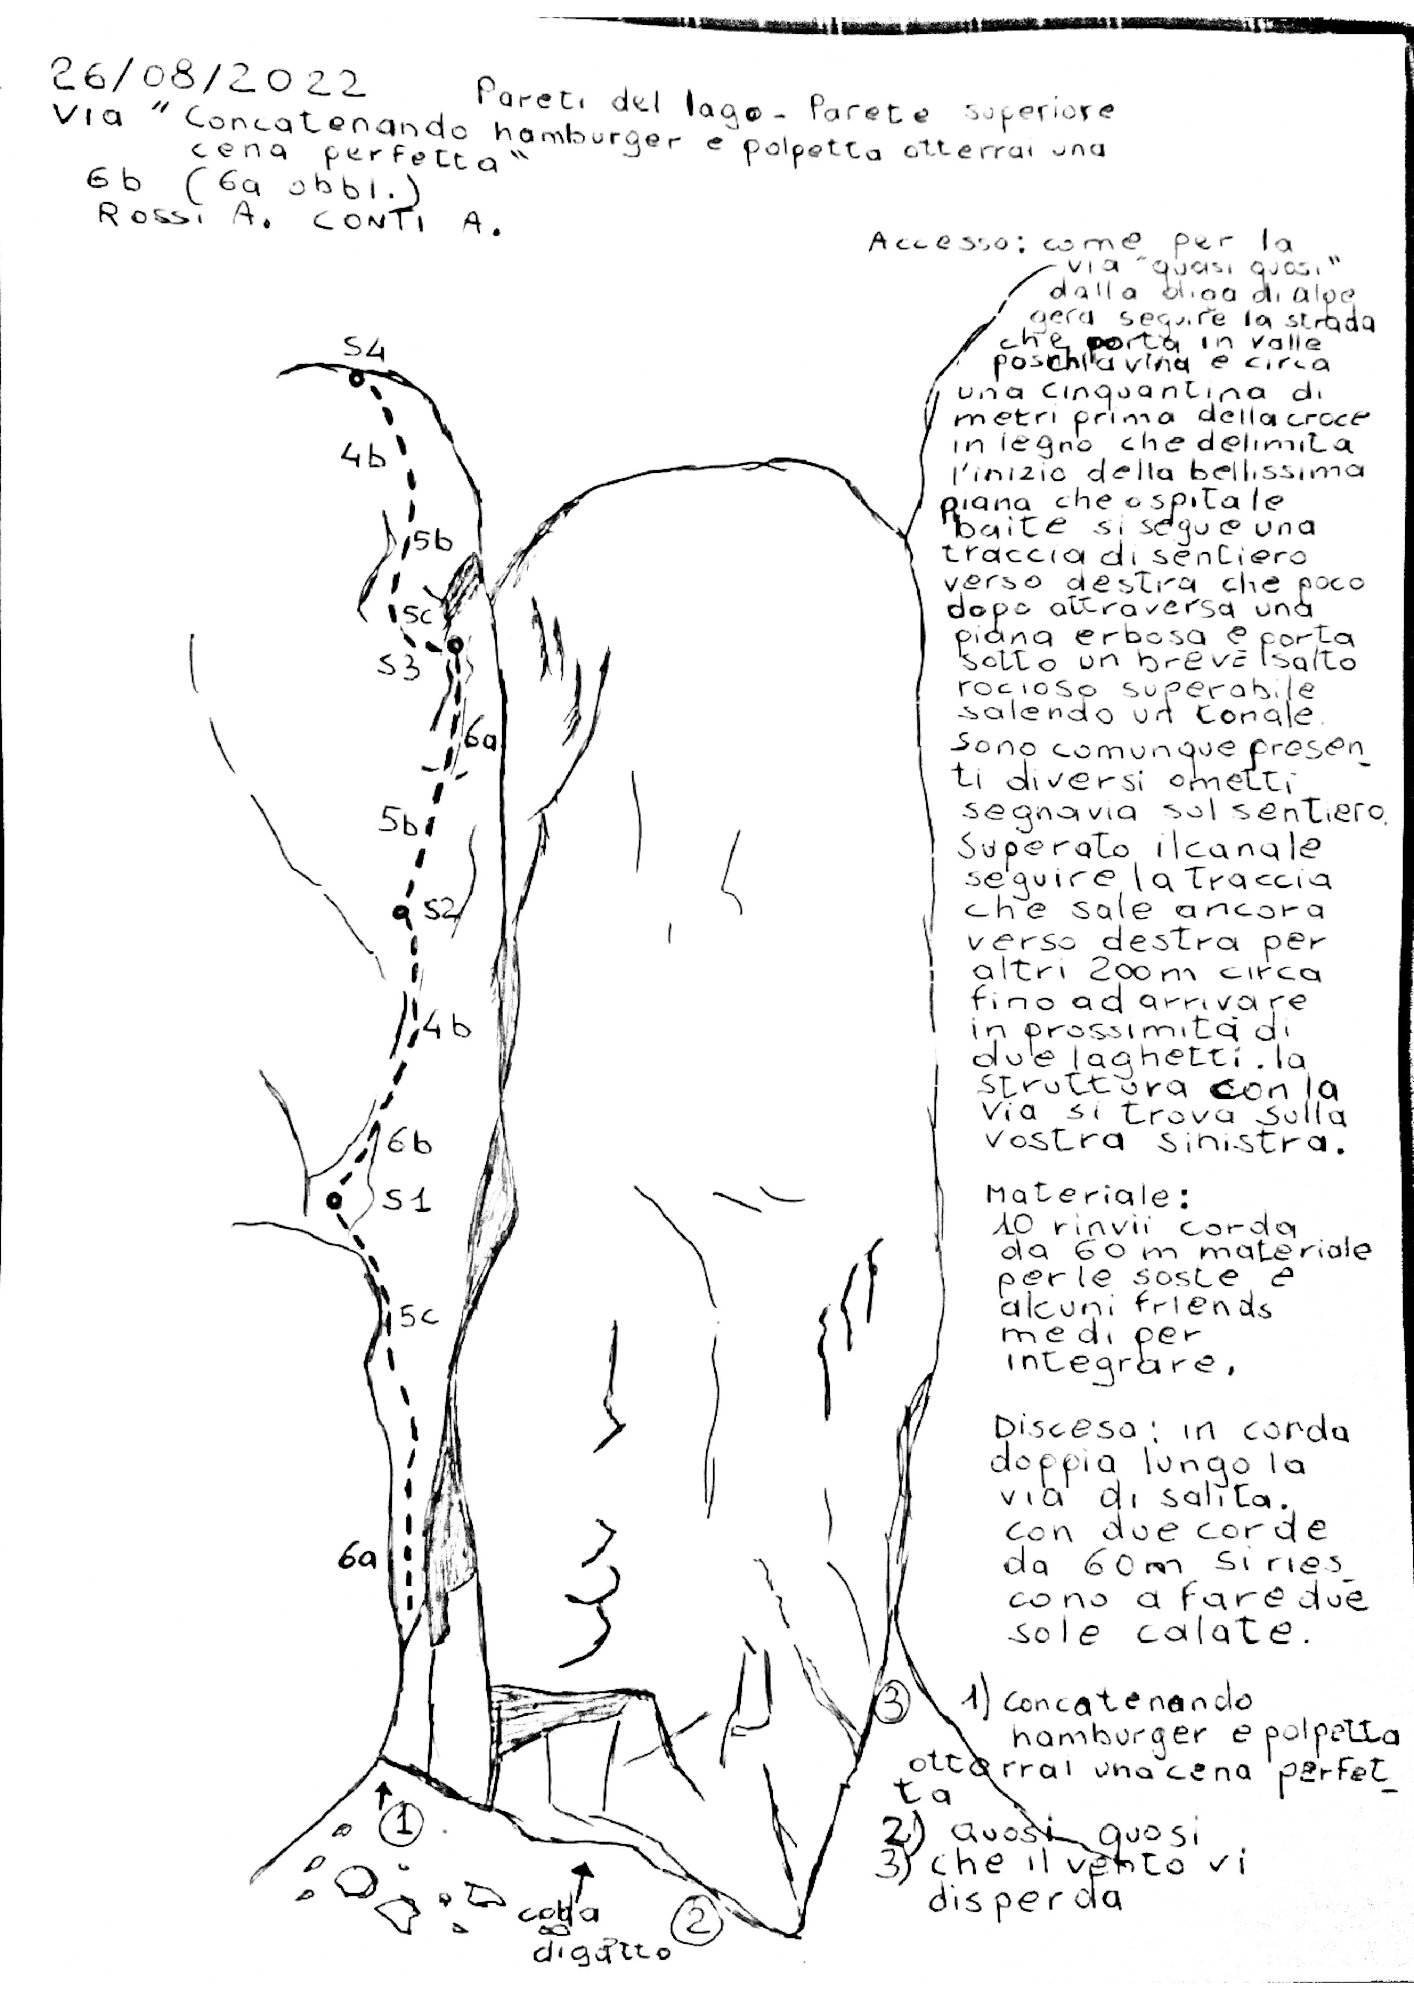 26/08/2022
Pareti del lago - Parete superiore
Via "Concatenando hamburger e polpetta otterrai una
cena perfetta"
6b (6a obbl.)
ROSSI A. CONTI A.
Accesso: come per la
via "quasi quasi"
dalla diga di alpe
gera seguire la strada
che porta in valle
poschiavina e circa
una cinquantina di
metri prima della croce
in legno che delimita
l'inizio della bellissima
piana che ospita le
baite si segue una
traccia di sentiero
verso destra che poco
dopo attraversa una
piana erbosa e porta
sotto un breve salto
rocioso superabile
salendo un canale.
Sono comunque presen_
ti diversi ometti
segnavia sul sentiero.
Superato il canale
seguire la traccia
che sale ancora
verso destra per
altri 200m circa
fino ad arrivare
in prossimità di
due laghetti. la
struttura con la
via si trova sulla
vostra sinistra.
Materiale:
10 rinvii corda
da 60m materiale
per le soste e
alcuni friends
medi per
integrare.
Discesa: in corda
doppia lungo la
via di salita.
con due corde
da 60m si ries_
cono a fare due
sole calate.
1) Concatenando
hamburger e polpetta
otterrai una cena perfet_
ta
2) quasi quasi
3) che il vento vi
disperda
S4
4b
5b
5c
S3
6a
5b
S2
4b
6b
S1
5c
6a
3
1
2
coda
di gatto